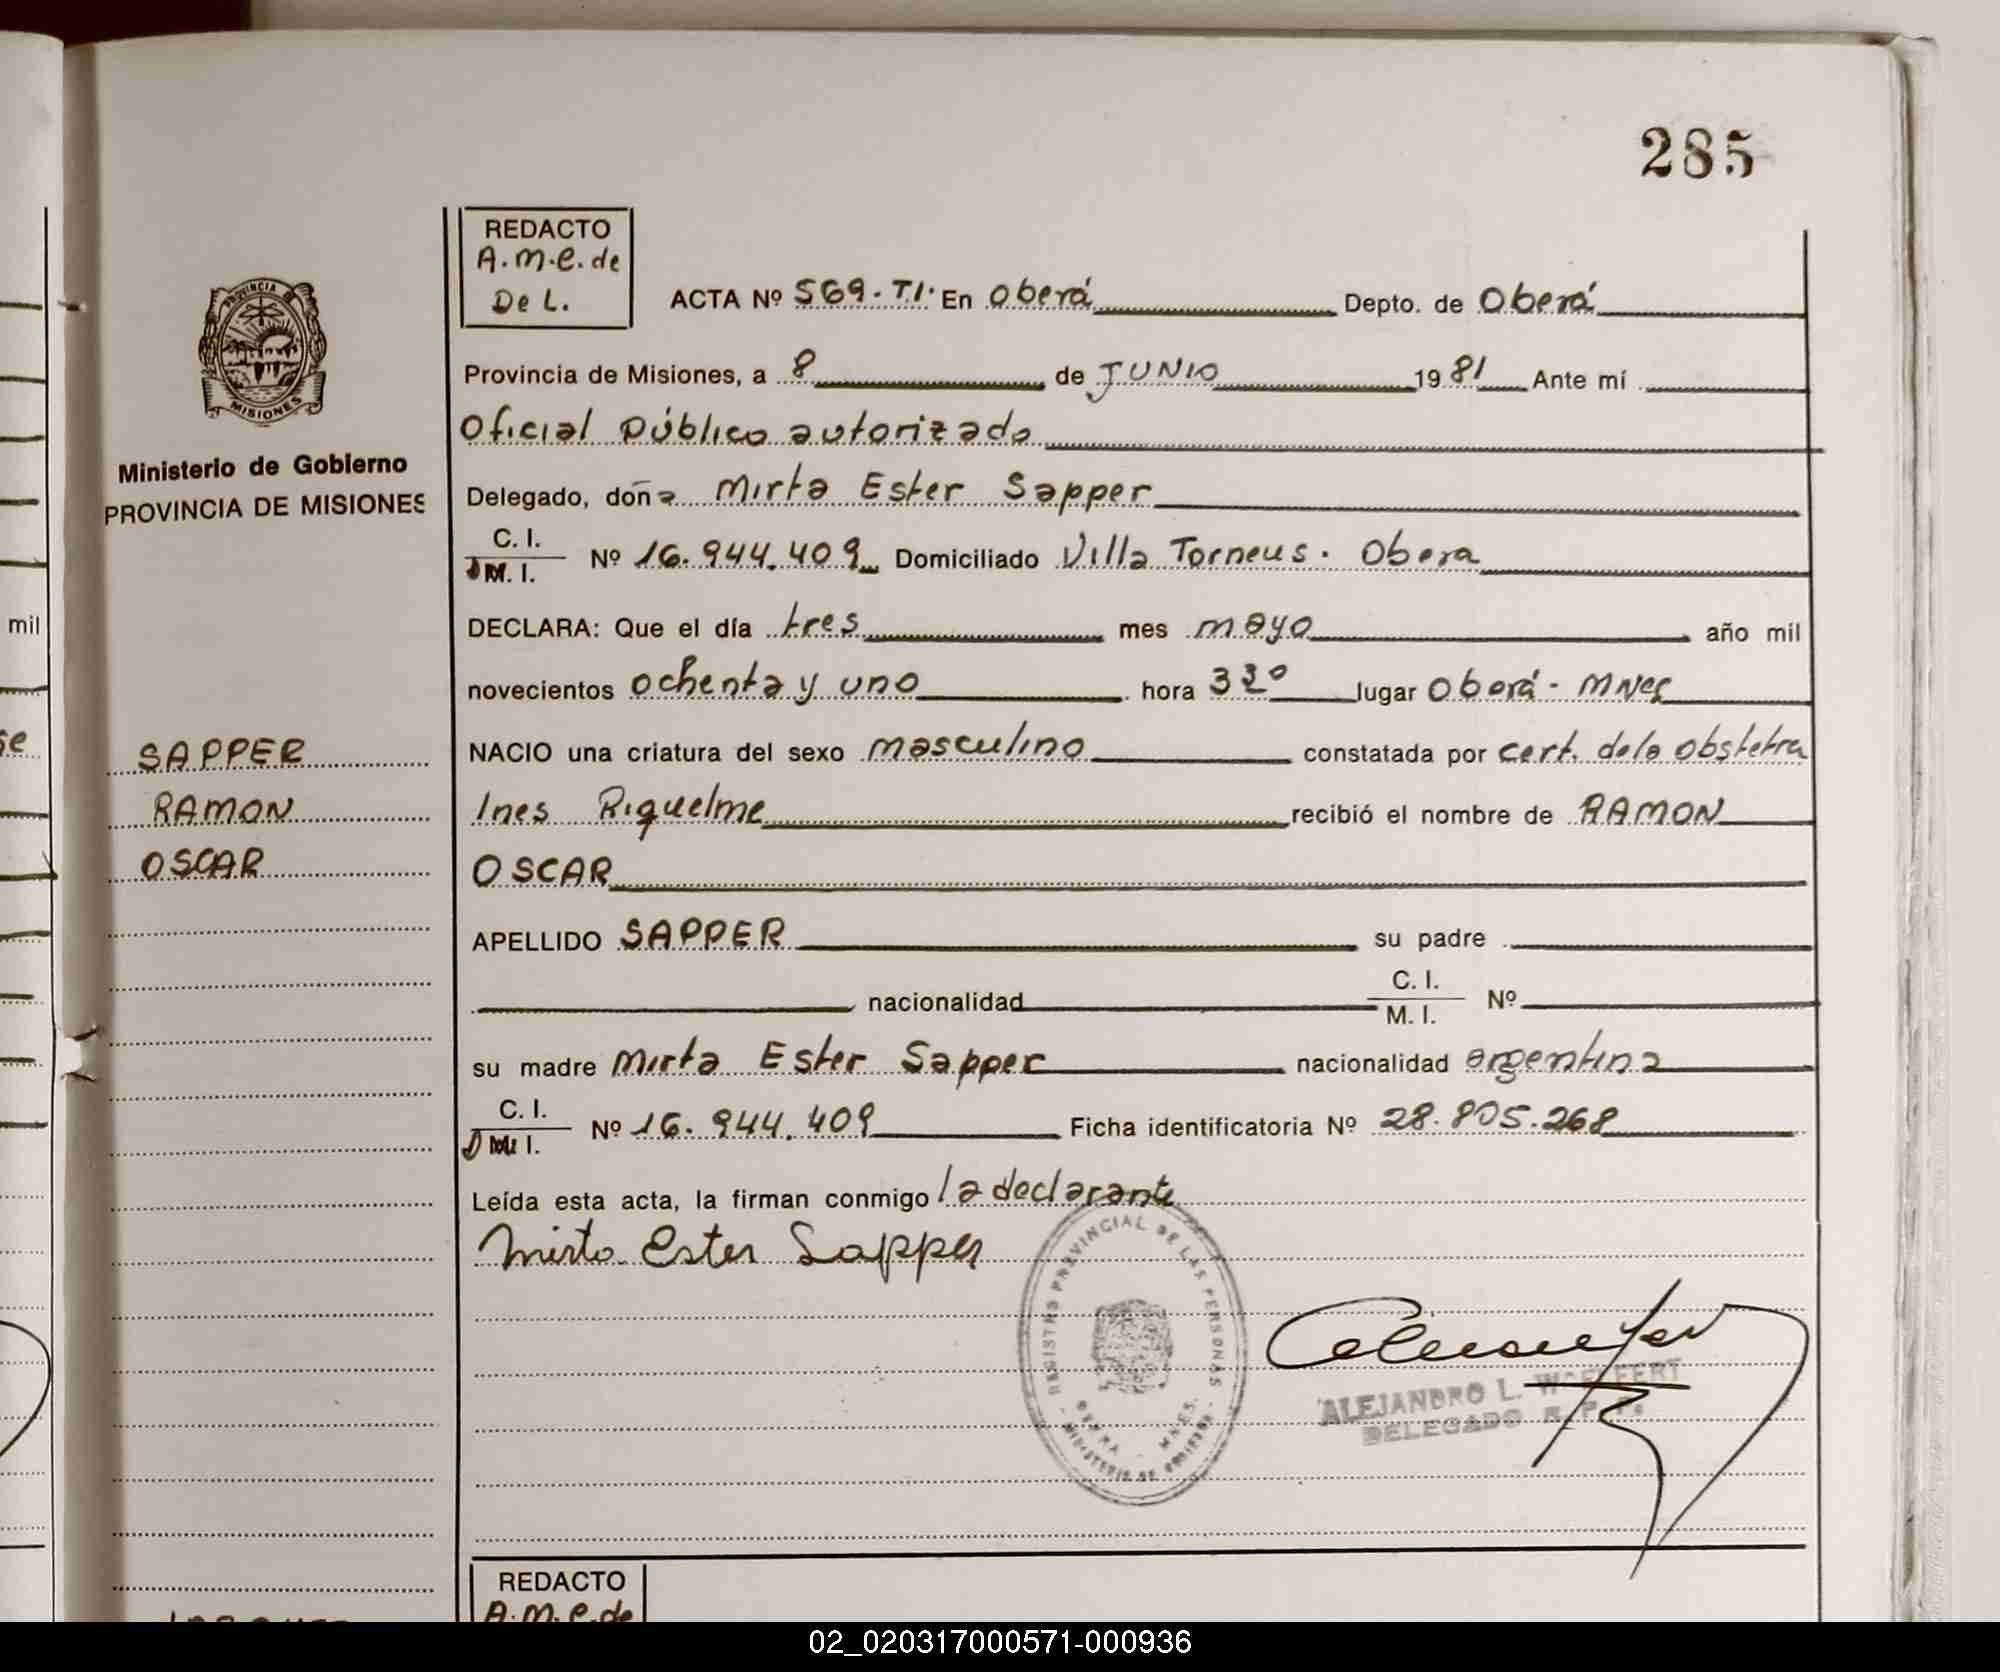 285
REDACTO
A.M.E. de
De L.
ACTA Nº 569. T.I. En Oberá Depto. de Oberá
Provincia de Misiones, a 8 de JUNIO 1981 Ante mí
Oficial Público autorizado
Delegado, doña Mirta Ester Sapper
C. I.
D M. I. Nº 16.944.409 Domiciliado Villa Torneus. Obera
DECLARA: Que el día tres mes mayo año mil
novecientos ochenta y uno hora 3 lugar Oberá - MNes
NACIO una criatura del sexo masculino constatada por cert. de la obstetra
Ines Riquelme recibió el nombre de RAMON
OSCAR
APELLIDO SAPPER su padre
nacionalidad C. I.
M. I. Nº
su madre Mirta Ester Sapper nacionalidad argentina
C. I.
D M. I. Nº 16.944.409 Ficha identificatoria Nº 28.805.268
Leída esta acta, la firman conmigo la declarante
Mirta Ester Sapper
REGISTRO PROVINCIAL DE LAS PERSONAS
OBERA - MNES.
- MINISTERIO DE GOBIERNO -
ALEJANDRO L. WOEFFERT
DELEGADO R. P. P.
REDACTO
A.M.E. de
PROVINCIA DE
MISIONES
Ministerio de Gobierno
PROVINCIA DE MISIONES
SAPPER
RAMON
OSCAR
mil
se
02_020317000571-000936